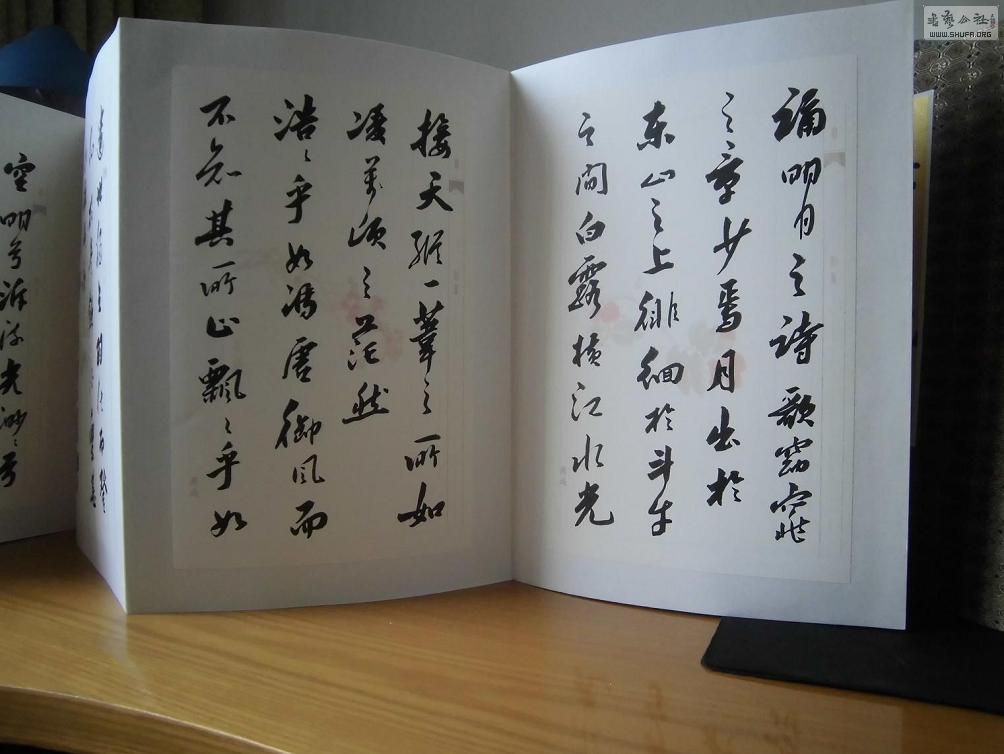 誦明月之詩歌窈窕
之章少焉月出於
東山之上徘徊於斗牛
之間白露横江水光
接天縱一葦之所如
凌萬頃之茫然
浩々乎如馮虛御風而
不知其所止飄々乎如
空明兮泝流光渺々兮
書藝公社
WWW.SHUFA.ORG